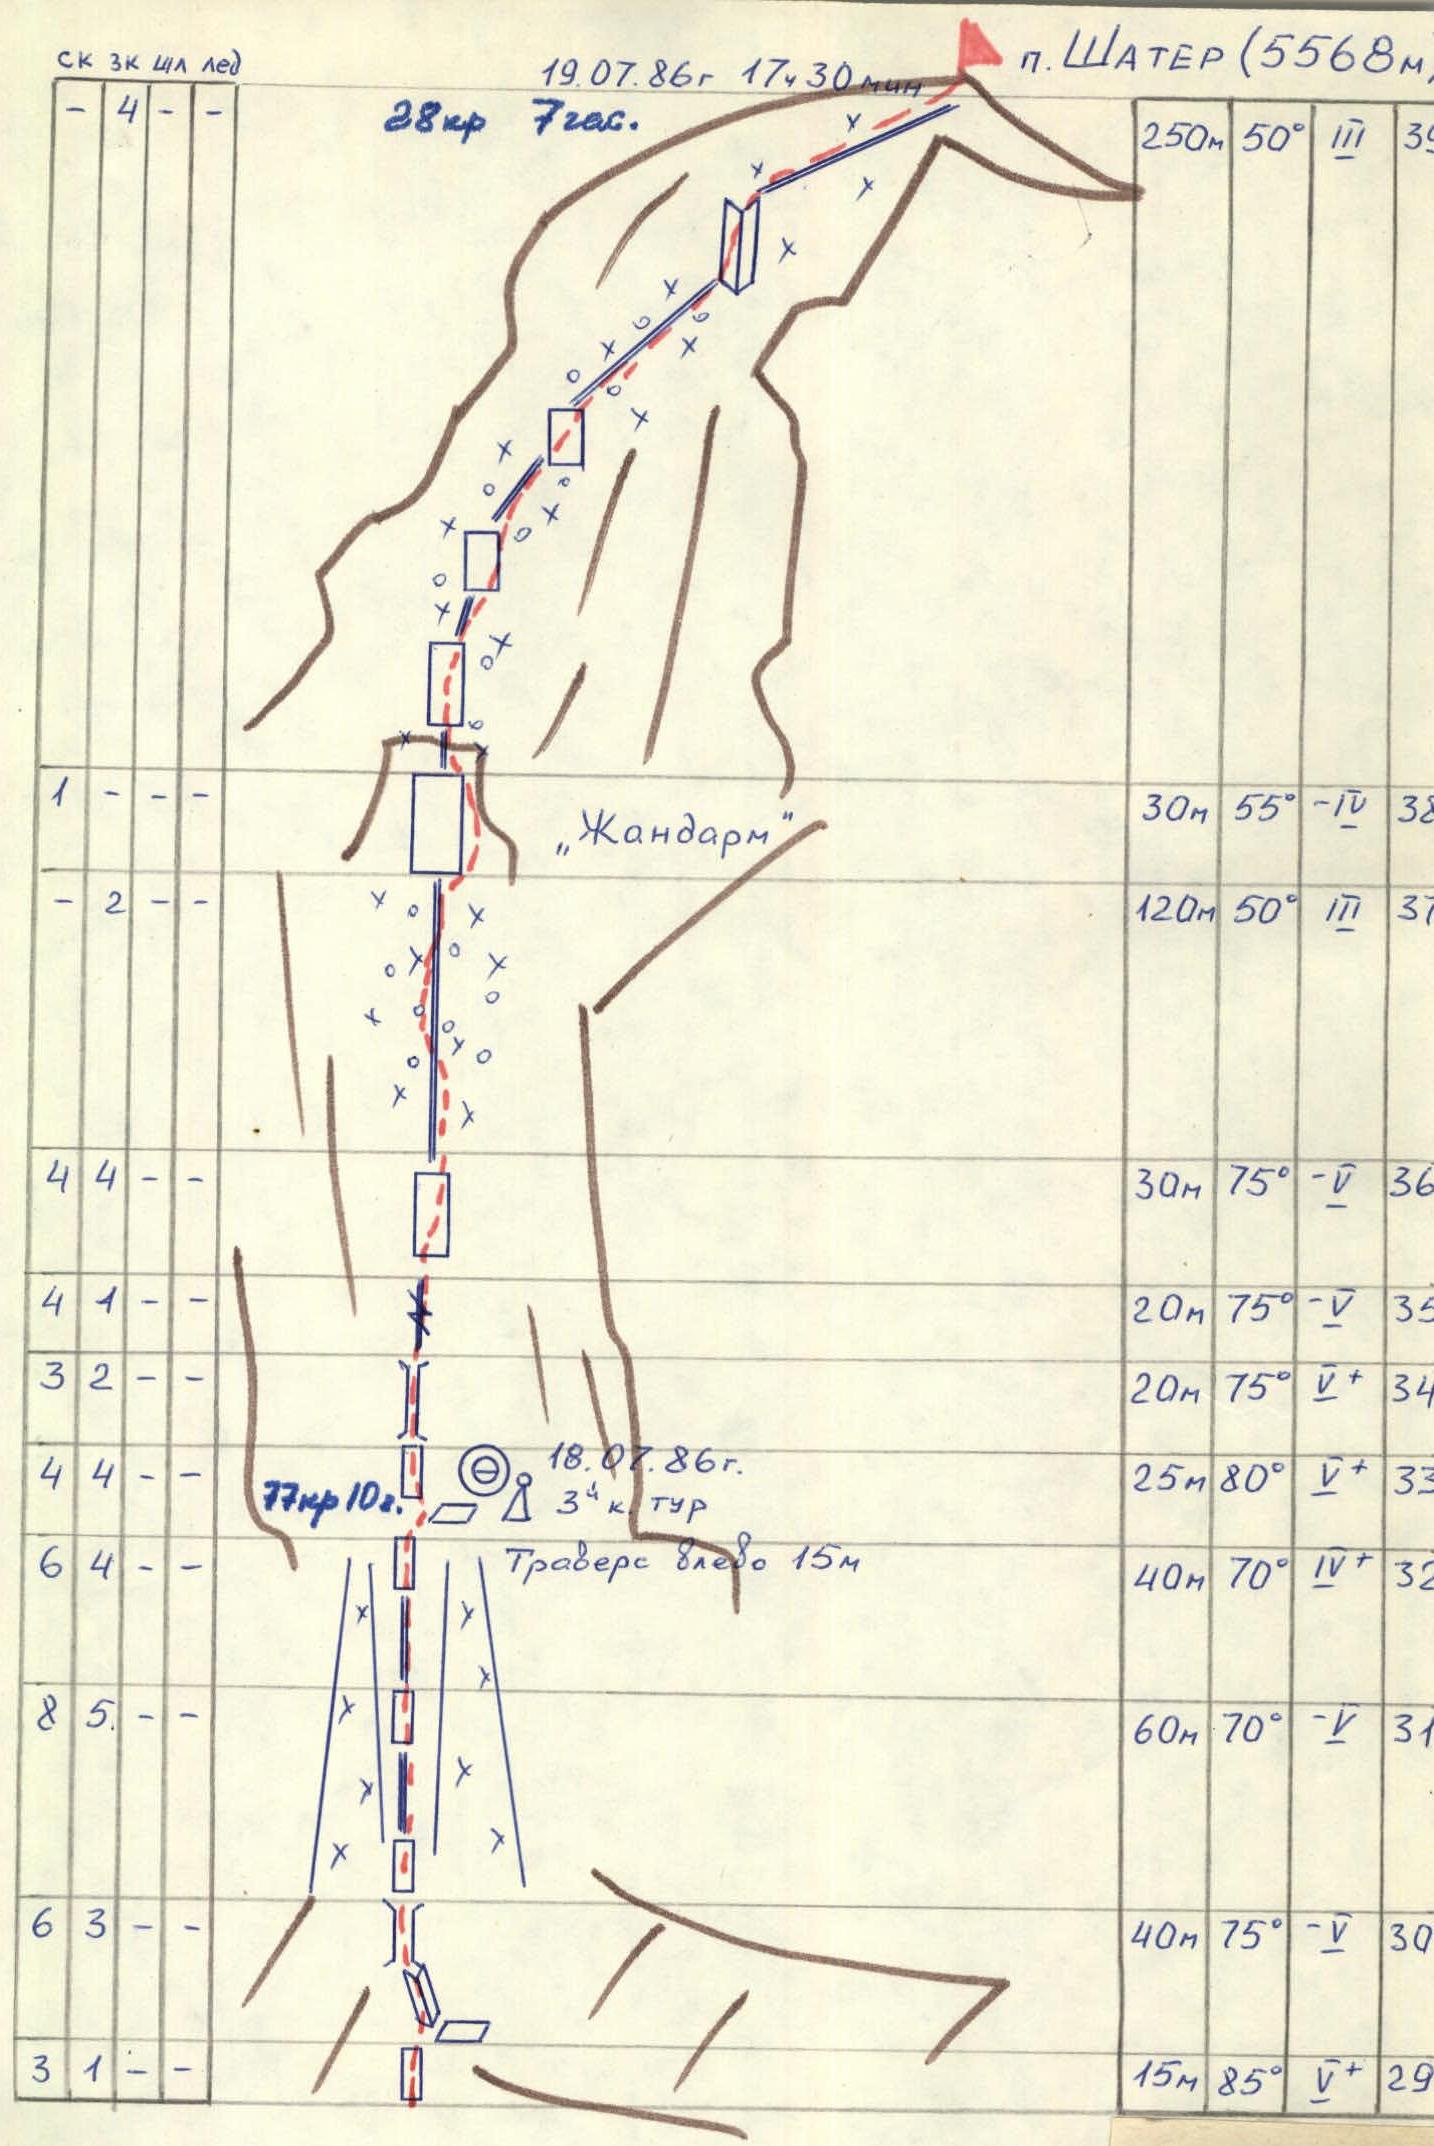 ск зк шл лед
19.07.86г 17ч 30мин
п. ШАТЕР (5568м)
28кр 7час.
- 4 - - 250м 50° III 39
1 - - - „Жандарм" 30м 55° -IV 38
- 2 - - 120м 50° III 37
4 4 - - 30м 75° -V 36
4 1 - - 20м 75° -V 35
3 2 - - 20м 75° V+ 34
4 4 - - 25м 80° V+ 33
18.07.86г.
77кр 10г. 3й к. тур
Траверс влево 15м
6 4 - - 40м 70° IV+ 32
8 5. - - 60м 70° -V 31
6 3 - - 40м 75° -V 30
3 1 - - 15м 85° V+ 29